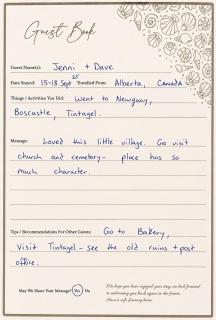 Guest Book
Guest Name(s): Jenni + Dave
Date Stayed: 15-18 Sept 25 Travelled From: Alberta, CANADA
Things / Activities You Did: Went to Newquay,
Boscastle, Tintagel.
Message: Loved this little village. Go visit
church and cemetary - place has so
much character.
Tips / Recommendations For Other Guests: Go to Bakery,
Visit Tintagel - see the old ruins + post
office.
May We Share Your Message? Yes No
We hope you have enjoyed your stay, we look forward
to welcoming you back again in the future.
Have a safe journey home.